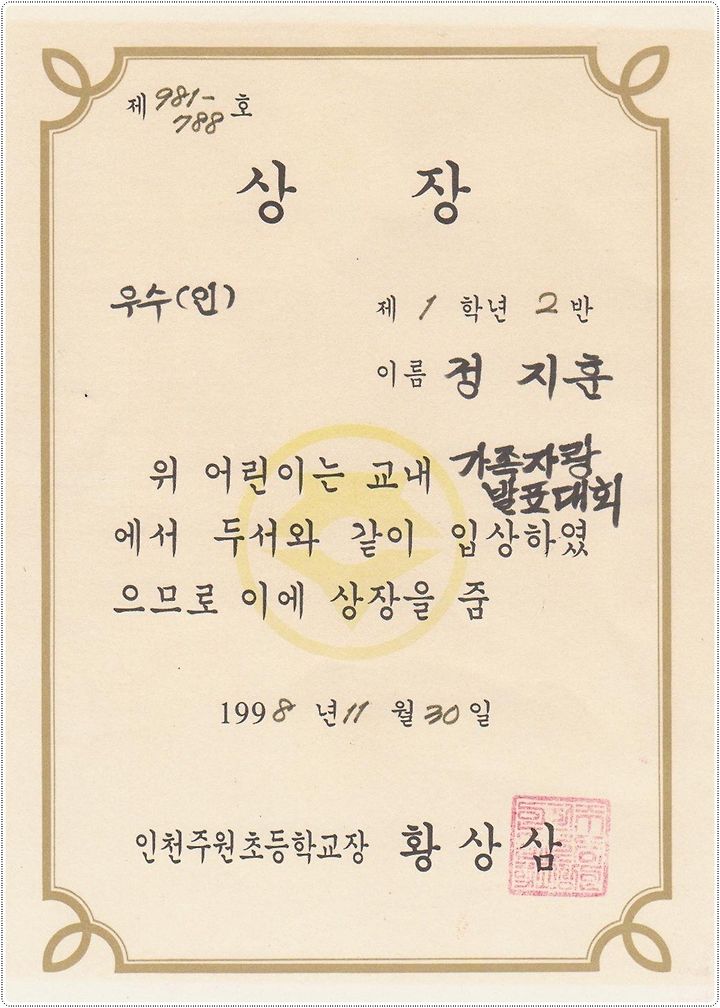 제 981-788 호
상 장
우수(인)
제 1 학년 2 반
이름 정 지훈
위 어린이는 교내 가족자랑 발표대회
에서 두서와 같이 입상하였
으므로 이에 상장을 줌
1998 년 11 월 30 일
인천주원초등학교장 황 상 삼